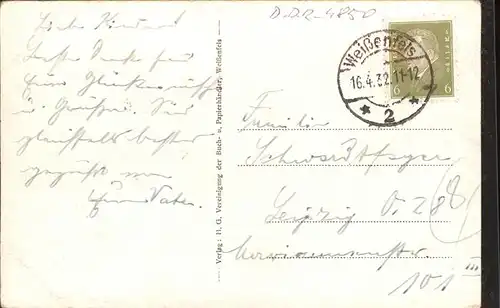 D.D.R-4850
Liebe Kinder!
Besten Dank für
Eure Glückwünsche
u. Grüße. Seid
gleichfalls bestens
gegrüßt von
Eurem Vater.
Verlag: H. G. Vereinigung der Buch- u. Papierhändler, Weißenfels
Weißenfels
16.4.32.11-12
* 2 *
6 6
Familie
Leipzig O. 28
101 III